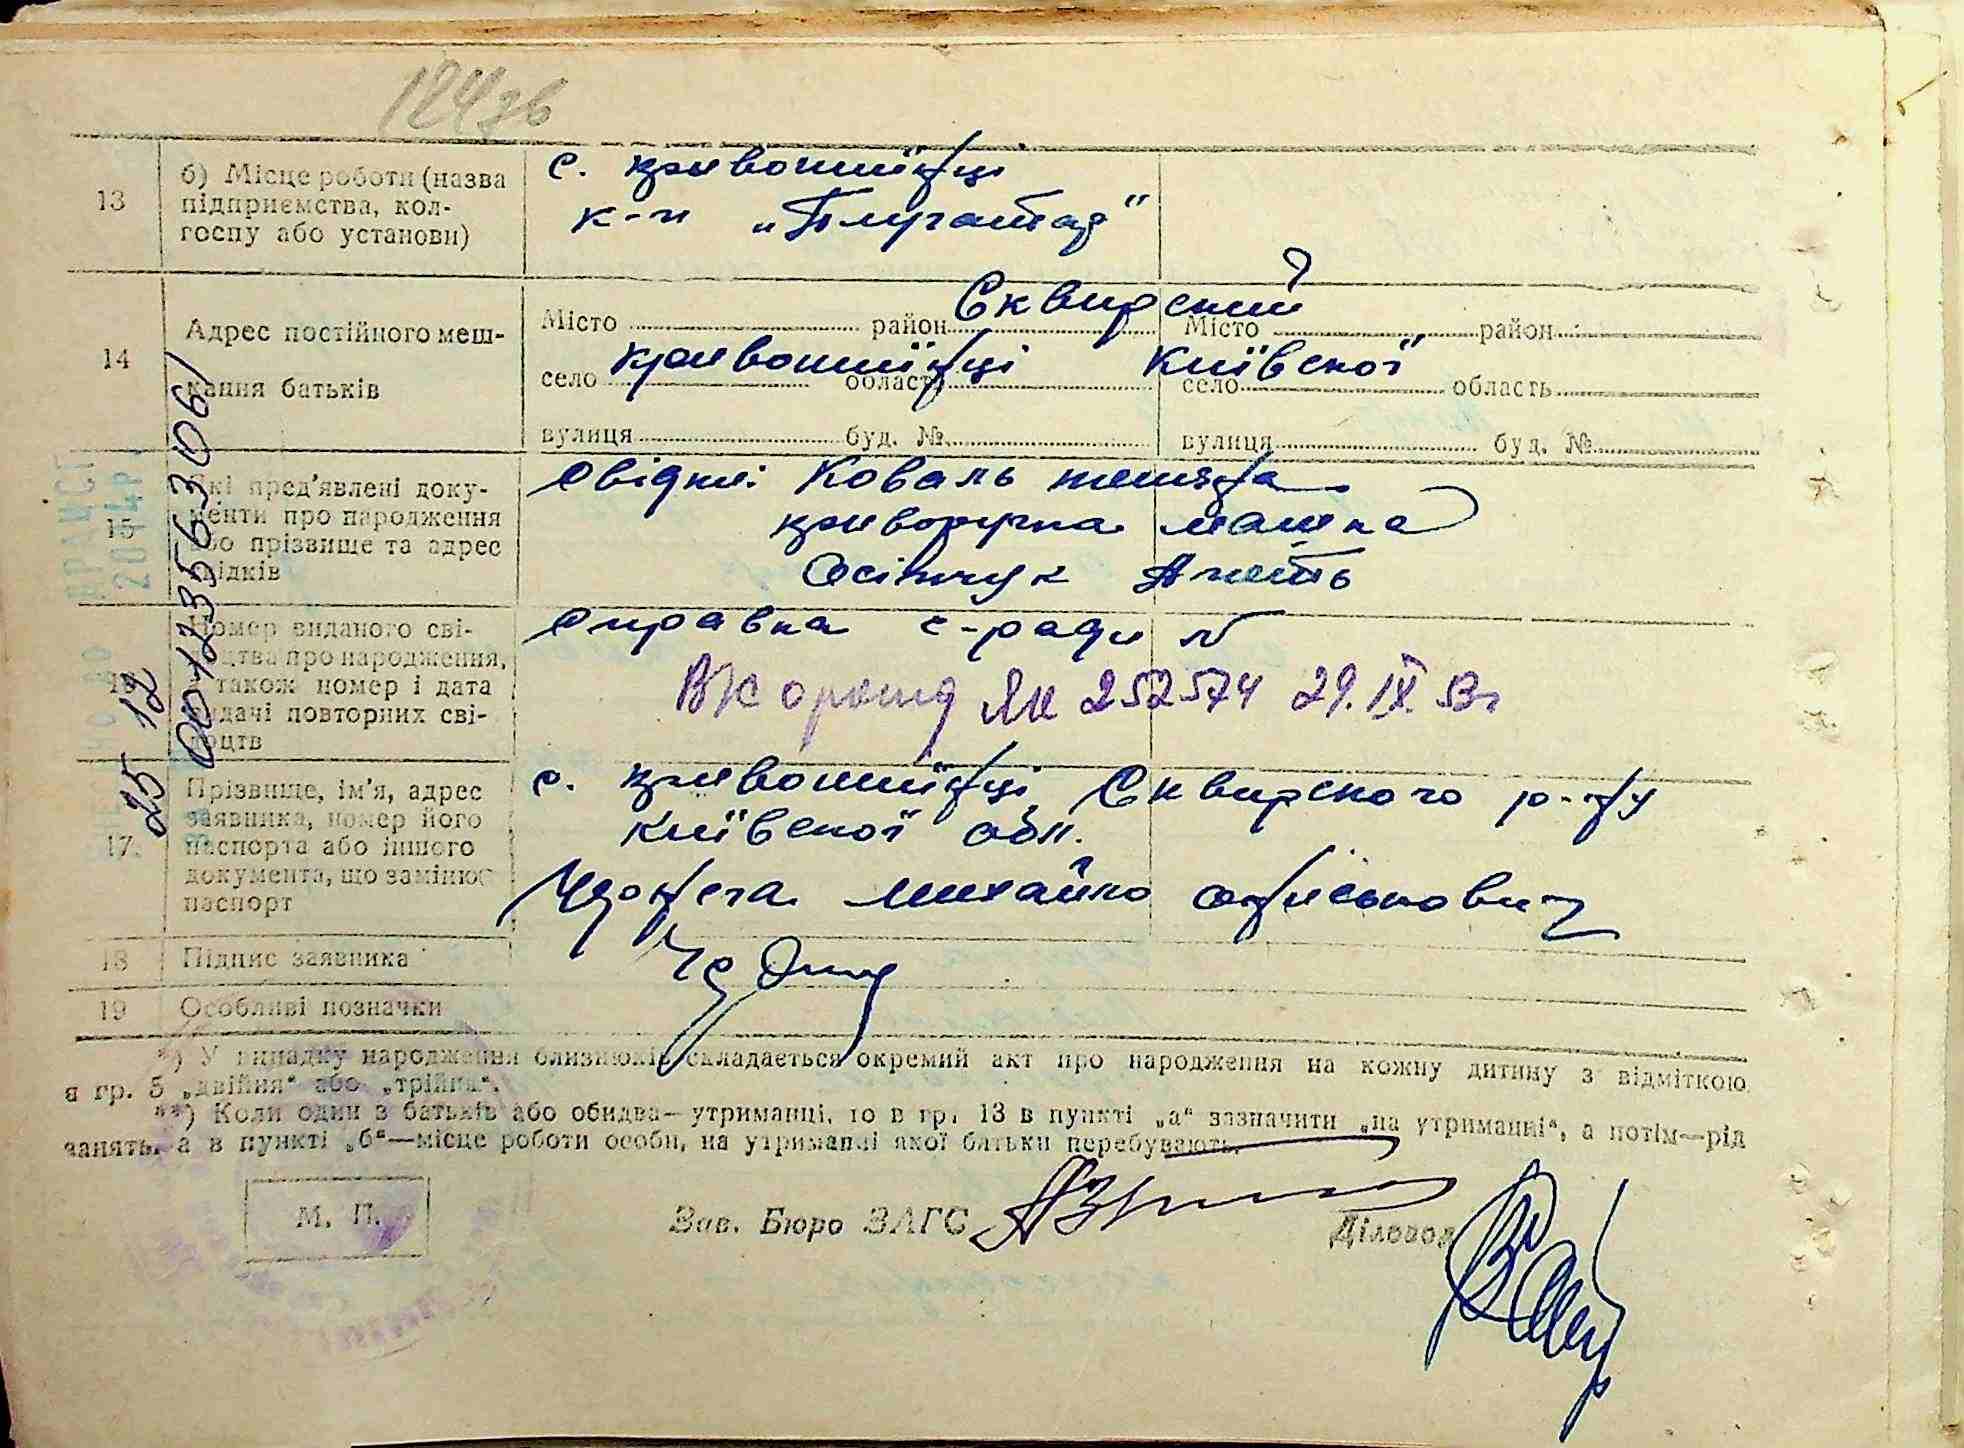 124зв
13 б) Місце роботи (назва підприємства, колгоспу або установи) с. Кривошиїнці
к-п
14 Адрес постійного мешкання батьків
Місто район Сквирський Місто район
село Кривошиїнці область Київської село область
вулиця буд. № вулиця буд. №
15 Які пред'явлені документи про народження або прізвище та адрес свідків
Свідки: Коваль
Криворучка
Осіпчук
16 Номер виданого свідоцтва про народження, а також номер і дата видачі повторних свідоцтв
Справка с-ради №
252574 29.IX.53г
17. Прізвище, ім'я, адрес заявника, номер його паспорта або іншого документа, що замінює паспорт
с. Кривошиїнці Сквирського р-ну
Київської обл.
Михайло
18 Підпис заявника
19 Особливі позначки
*) У випадку народження близнюків складається окремий акт про народження на кожну дитину з відміткою
в гр. 5 „двійня“ або „трійня“.
**) Коли один з батьків або обидва—утриманці, то в гр. 13 в пункті „а“ зазначити „на утриманні“, а потім—рід
занять, а в пункті „б“—місце роботи особи, на утриманні якої батьки перебувають.
М. П. Зав. Бюро ЗАГС Діловод
25 12
00123563061